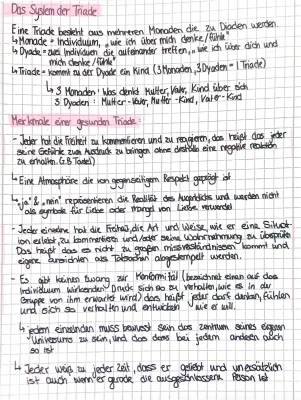 Das System der Triade
Eine Triade besteht aus mehreren Monaden die zu Diaden werden.
↳ Monade = Individuum, „wie ich über mich denke/fühle"
↳ Dyade = zwei Individuen die aufeinander treffen, „wie ich über dich und
mich denke/fühle"
↳ Triade = kommt zu der Dyade ein Kind (3 Monaden, 3 Dyaden = 1 Triade)
↳ 3 Monaden: Was denkt Mutter, Vater, Kind über sich
3 Dyaden: Mutter-Vater, Mutter-Kind, Vater-Kind
Merkmale einer gesunden Triade:
- Jeder hat die Freiheit zu kommentieren und zu reagieren, das heißt das jeder
seine Gefühle zum Ausdruck zu bringen, ohne deshalb eine negative reaktion
zu erhalten. (z.B Tadel)
↳ Eine Atmosphäre die von gegenseitigem Respekt geprägt ist
↳ „ja" & „nein" repräsentieren die Realität des Augenblicks und werden nicht
als symbole für Liebe oder mangel von Liebe verwendet
- Jeder einzelne hat die Freiheit, die Art und Weise, wie er eine Situat-
ion erlebt, zu kommentieren und/oder seine Wahrnehmung zu überprüfen
Das heißt das es nicht zu großen missverständnissen kommt und
eigene Ansichten als Tatsachen abgestempelt werden.
- Es gibt keinen Zwang zur Konformität (bezeichnet einen auf das
Individuum wirkenden Druck sich so zu verhalten, wie es in der
Gruppe von ihm erwartet wird) das heißt jeder darf denken, fühlen
und sich so verhalten und entwickeln wie er will.
↳ jedem einzelnen muss bewusst sein das zentrum seines eigenen
Universums zu sein, und das dies bei jedem anderen auch
so ist
↳ Jeder weiß zu jeder Zeit, dass er geliebt und unersätzlich
ist auch wenn er gerade die ausgeschlossene Person ist